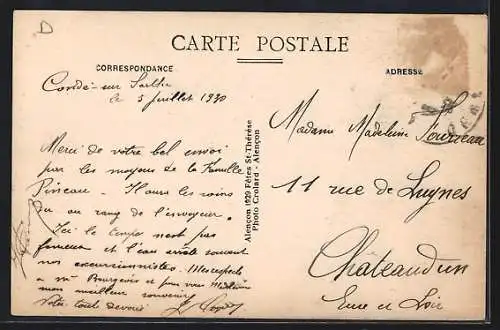 D
CARTE POSTALE
CORRESPONDANCE
ADRESSE
Condé-sur Sarthe
le 5 Juillet 1930
Merci de votre bel envoi
par les moyens de la Famille
Pineau.
du au rang de l'envoyeur.
Ici le temps n'est pas
fameux et l'eau arrête souvent
nos excursionnistes. Mes respects
a Mr Bourgeois et pour vous Madeleine
mon meilleur souvenir
Votre tout dévoué
Alençon 1929 Fêtes Ste-Thérèse
Photo Crolard - Alençon
Madame Madeleine
11 rue de Luynes
Châteaudun
Eure et Loir